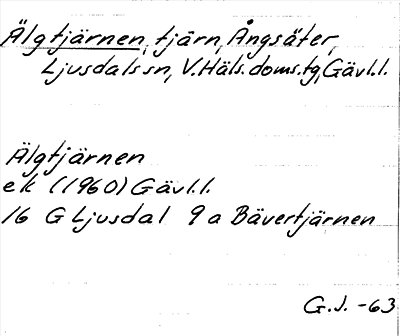 Älgtjärnen, tjärn, Ångsäter,
Ljusdals sn, V. Häls. doms. tg, Gävl.l.
Älgtjärnen
ek (1960) Gävl.l.
16 G Ljusdal 9 a Bävertjärnen
G.J. -63